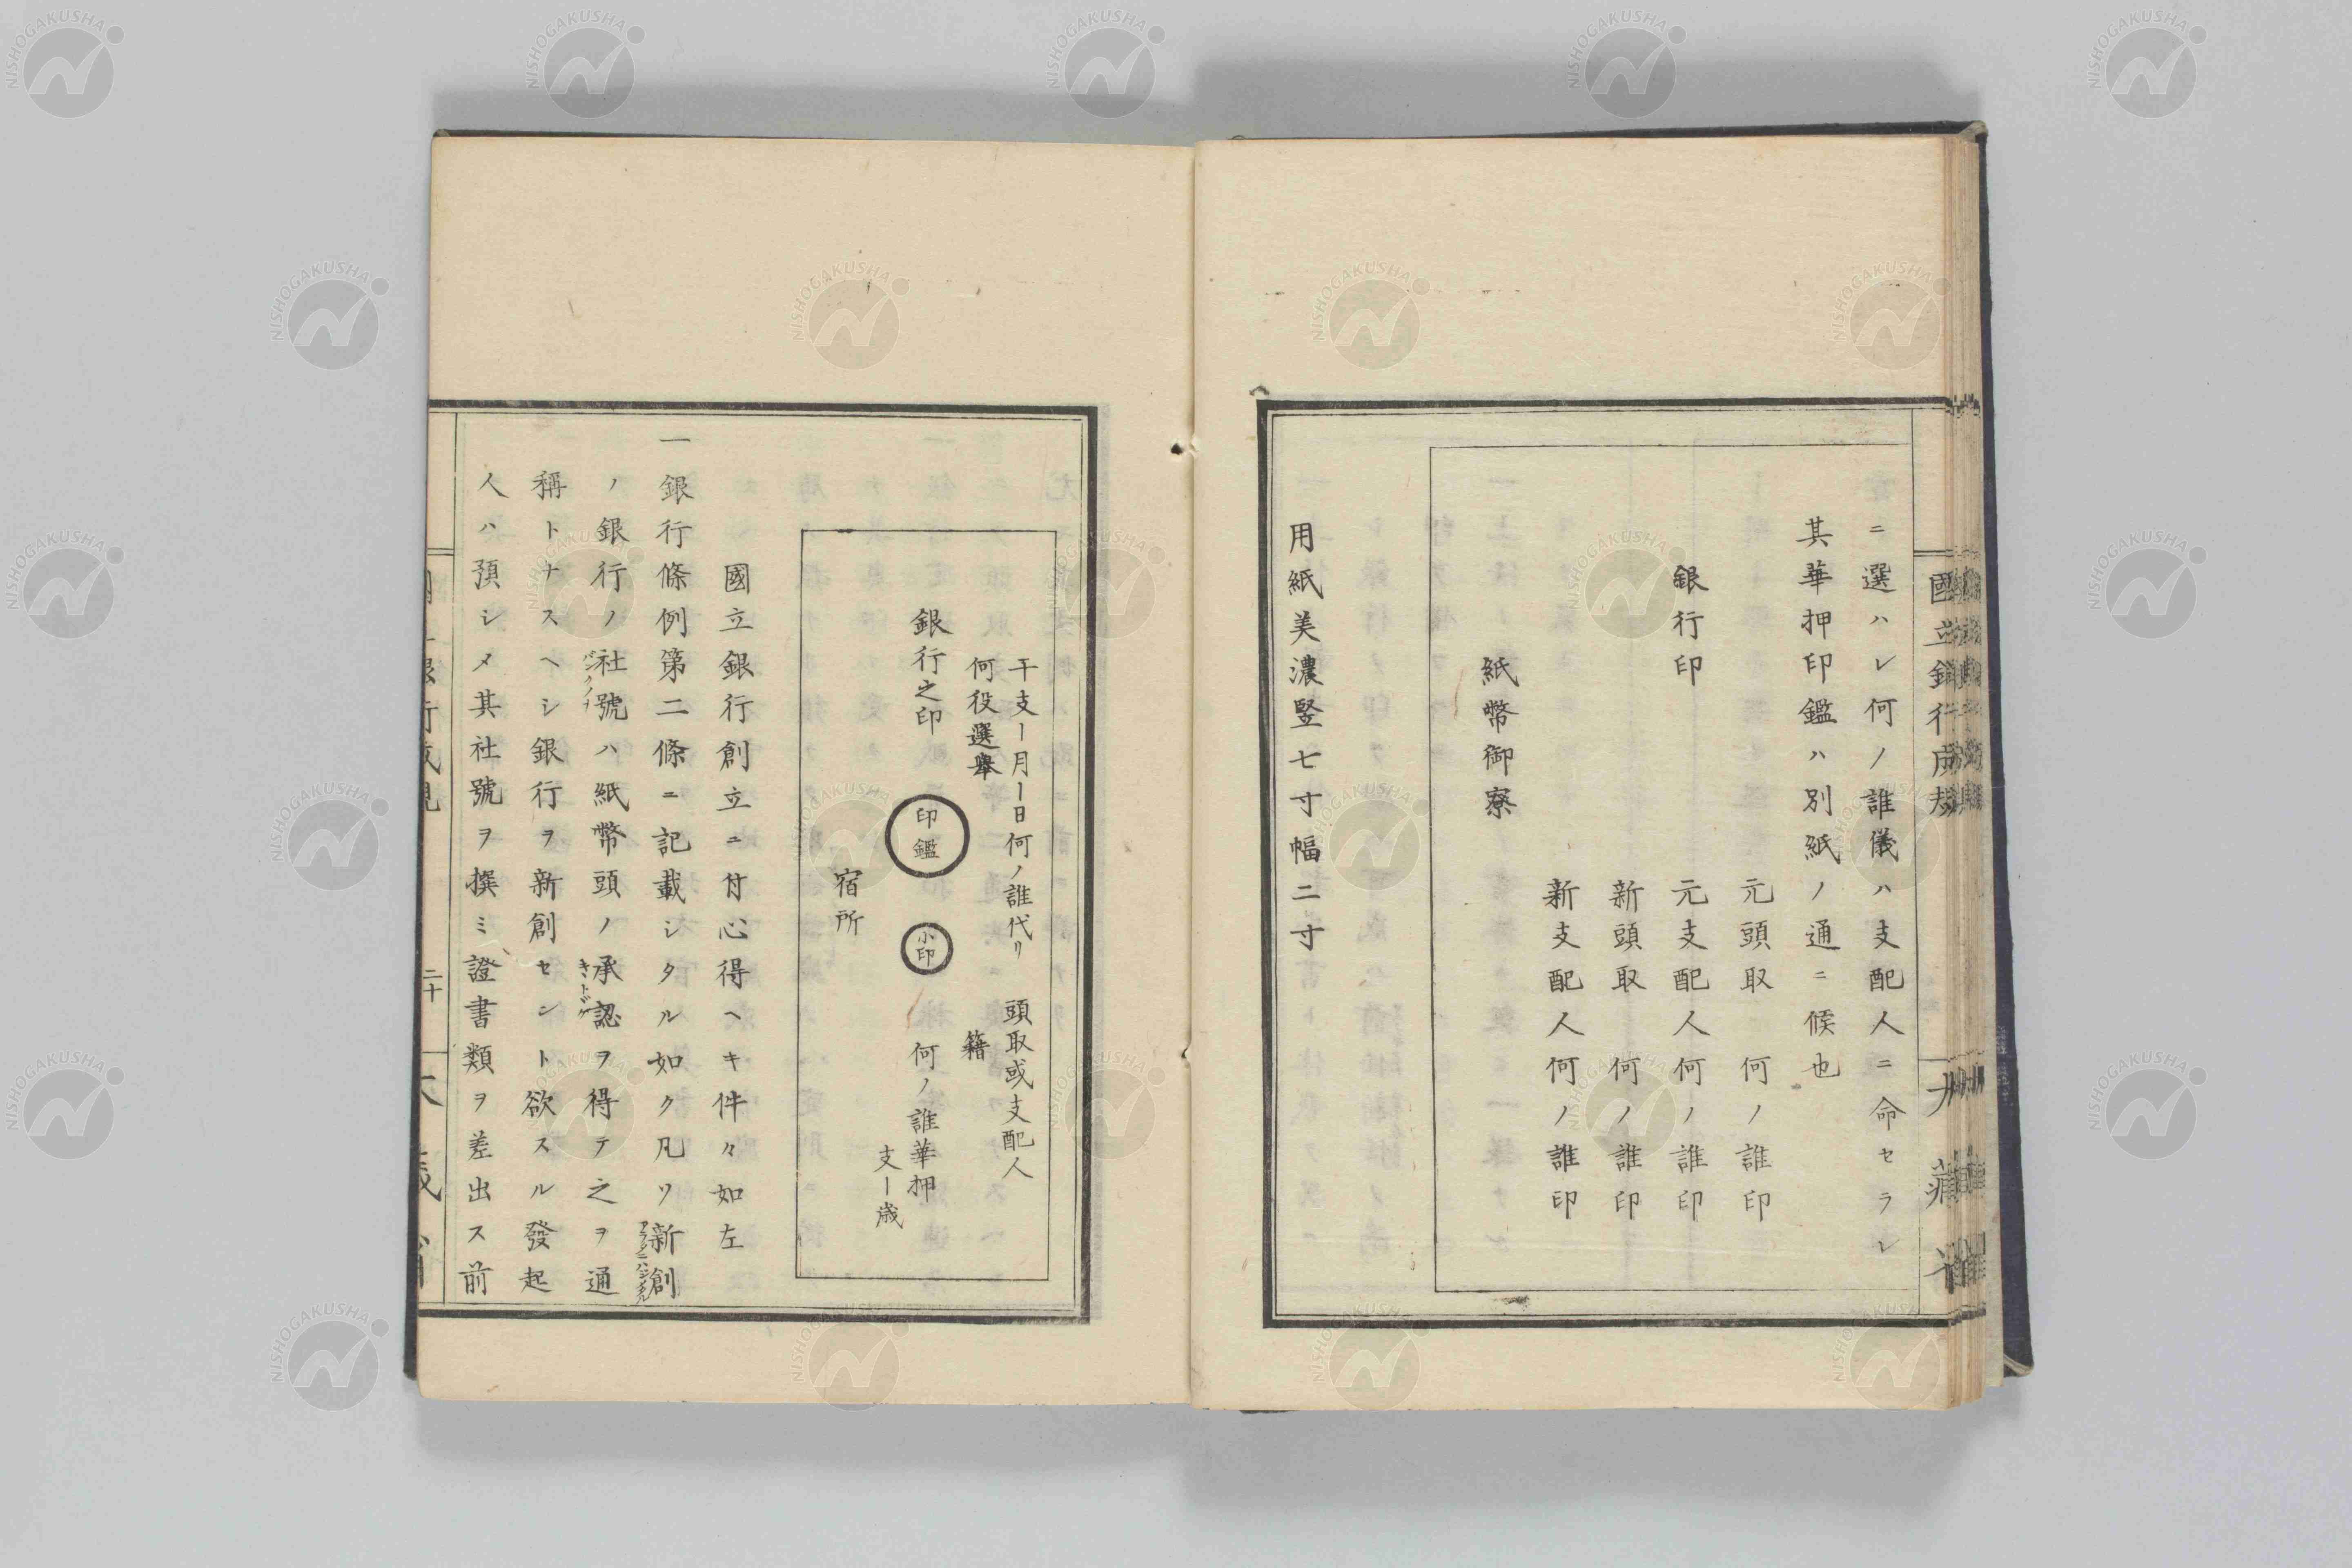 ニ選ハレ何ノ誰儀ハ支配人ニ命セラレ
其華押印鑑ハ別紙ノ通ニ候也
元頭取 何ノ誰印
銀行印 元支配人何ノ誰印
新頭取 何ノ誰印
新支配人何ノ誰印
紙幣御寮
用紙美濃竪七寸幅二寸
干支ー月ー日何ノ誰代リ 頭取或支配人
何役選擧 籍
銀行之印 印鑑 小印 何ノ誰華押
支ー歳
宿所
國立銀行創立ニ付心得ヘキ件々如左
一銀行條例第二條ニ記載シタル如ク凡ソ新創
ノ銀行ノ社號ハ紙幣頭ノ承認ヲ得テ之ヲ通
稱トナスヘシ銀行ヲ新創セント欲スル發起
人ハ預シメ其社號ヲ撰ミ證書類ヲ差出ス前
二十
NISHOGAKUSHA